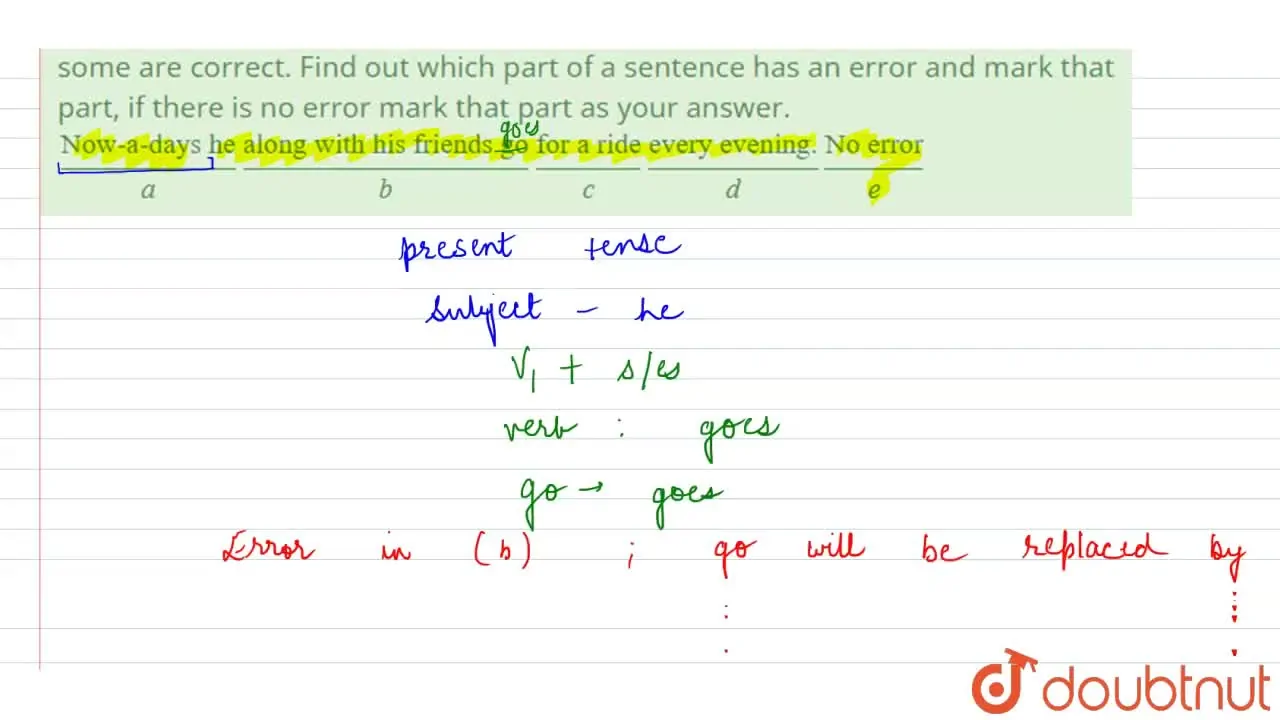 some are correct. Find out which part of a sentence has an error and mark that
part, if there is no error mark that part as your answer.
goes
Now-a-days he along with his friends go for a ride every evening. No error
a b c d e
present tense
subject - he
V1 + s/es
verb : goes
go → goes
Error in (b) ; go will be replaced by
doubtnut